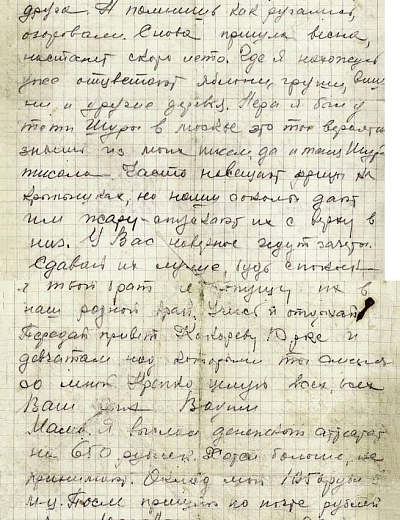 друга. И помнишь как ругались,
озоровали. Снова пришла весна,
настанет скоро лето. Где я нахожусь
уже отцветают яблони, груши, виш
ни и другие деревья. Вчера я был у
тети Шуры в Москве это ты вероятно
знаешь из моих писем, да и тетя Шура
писала. Часто навещают фрицы на
но наши соколы дают
им жару - спускают их с верху в
низ. У Вас наверное идут зачеты.
Сдавай их лучше, будь спокой
твой брат не пустит их в
наш родной край. Учись и отдыхай
Передай привет Кокореву Юрке и
девчатам над которыми ты смеялся
со мной. Крепко целую всех, всех
Ваш Вадим
Мама. Я выслал денежный аттестат
на 650 рублей. Хотел больше, не
принимают. Оклад мой рублей в
м-ц. После пришлю по почте рублей